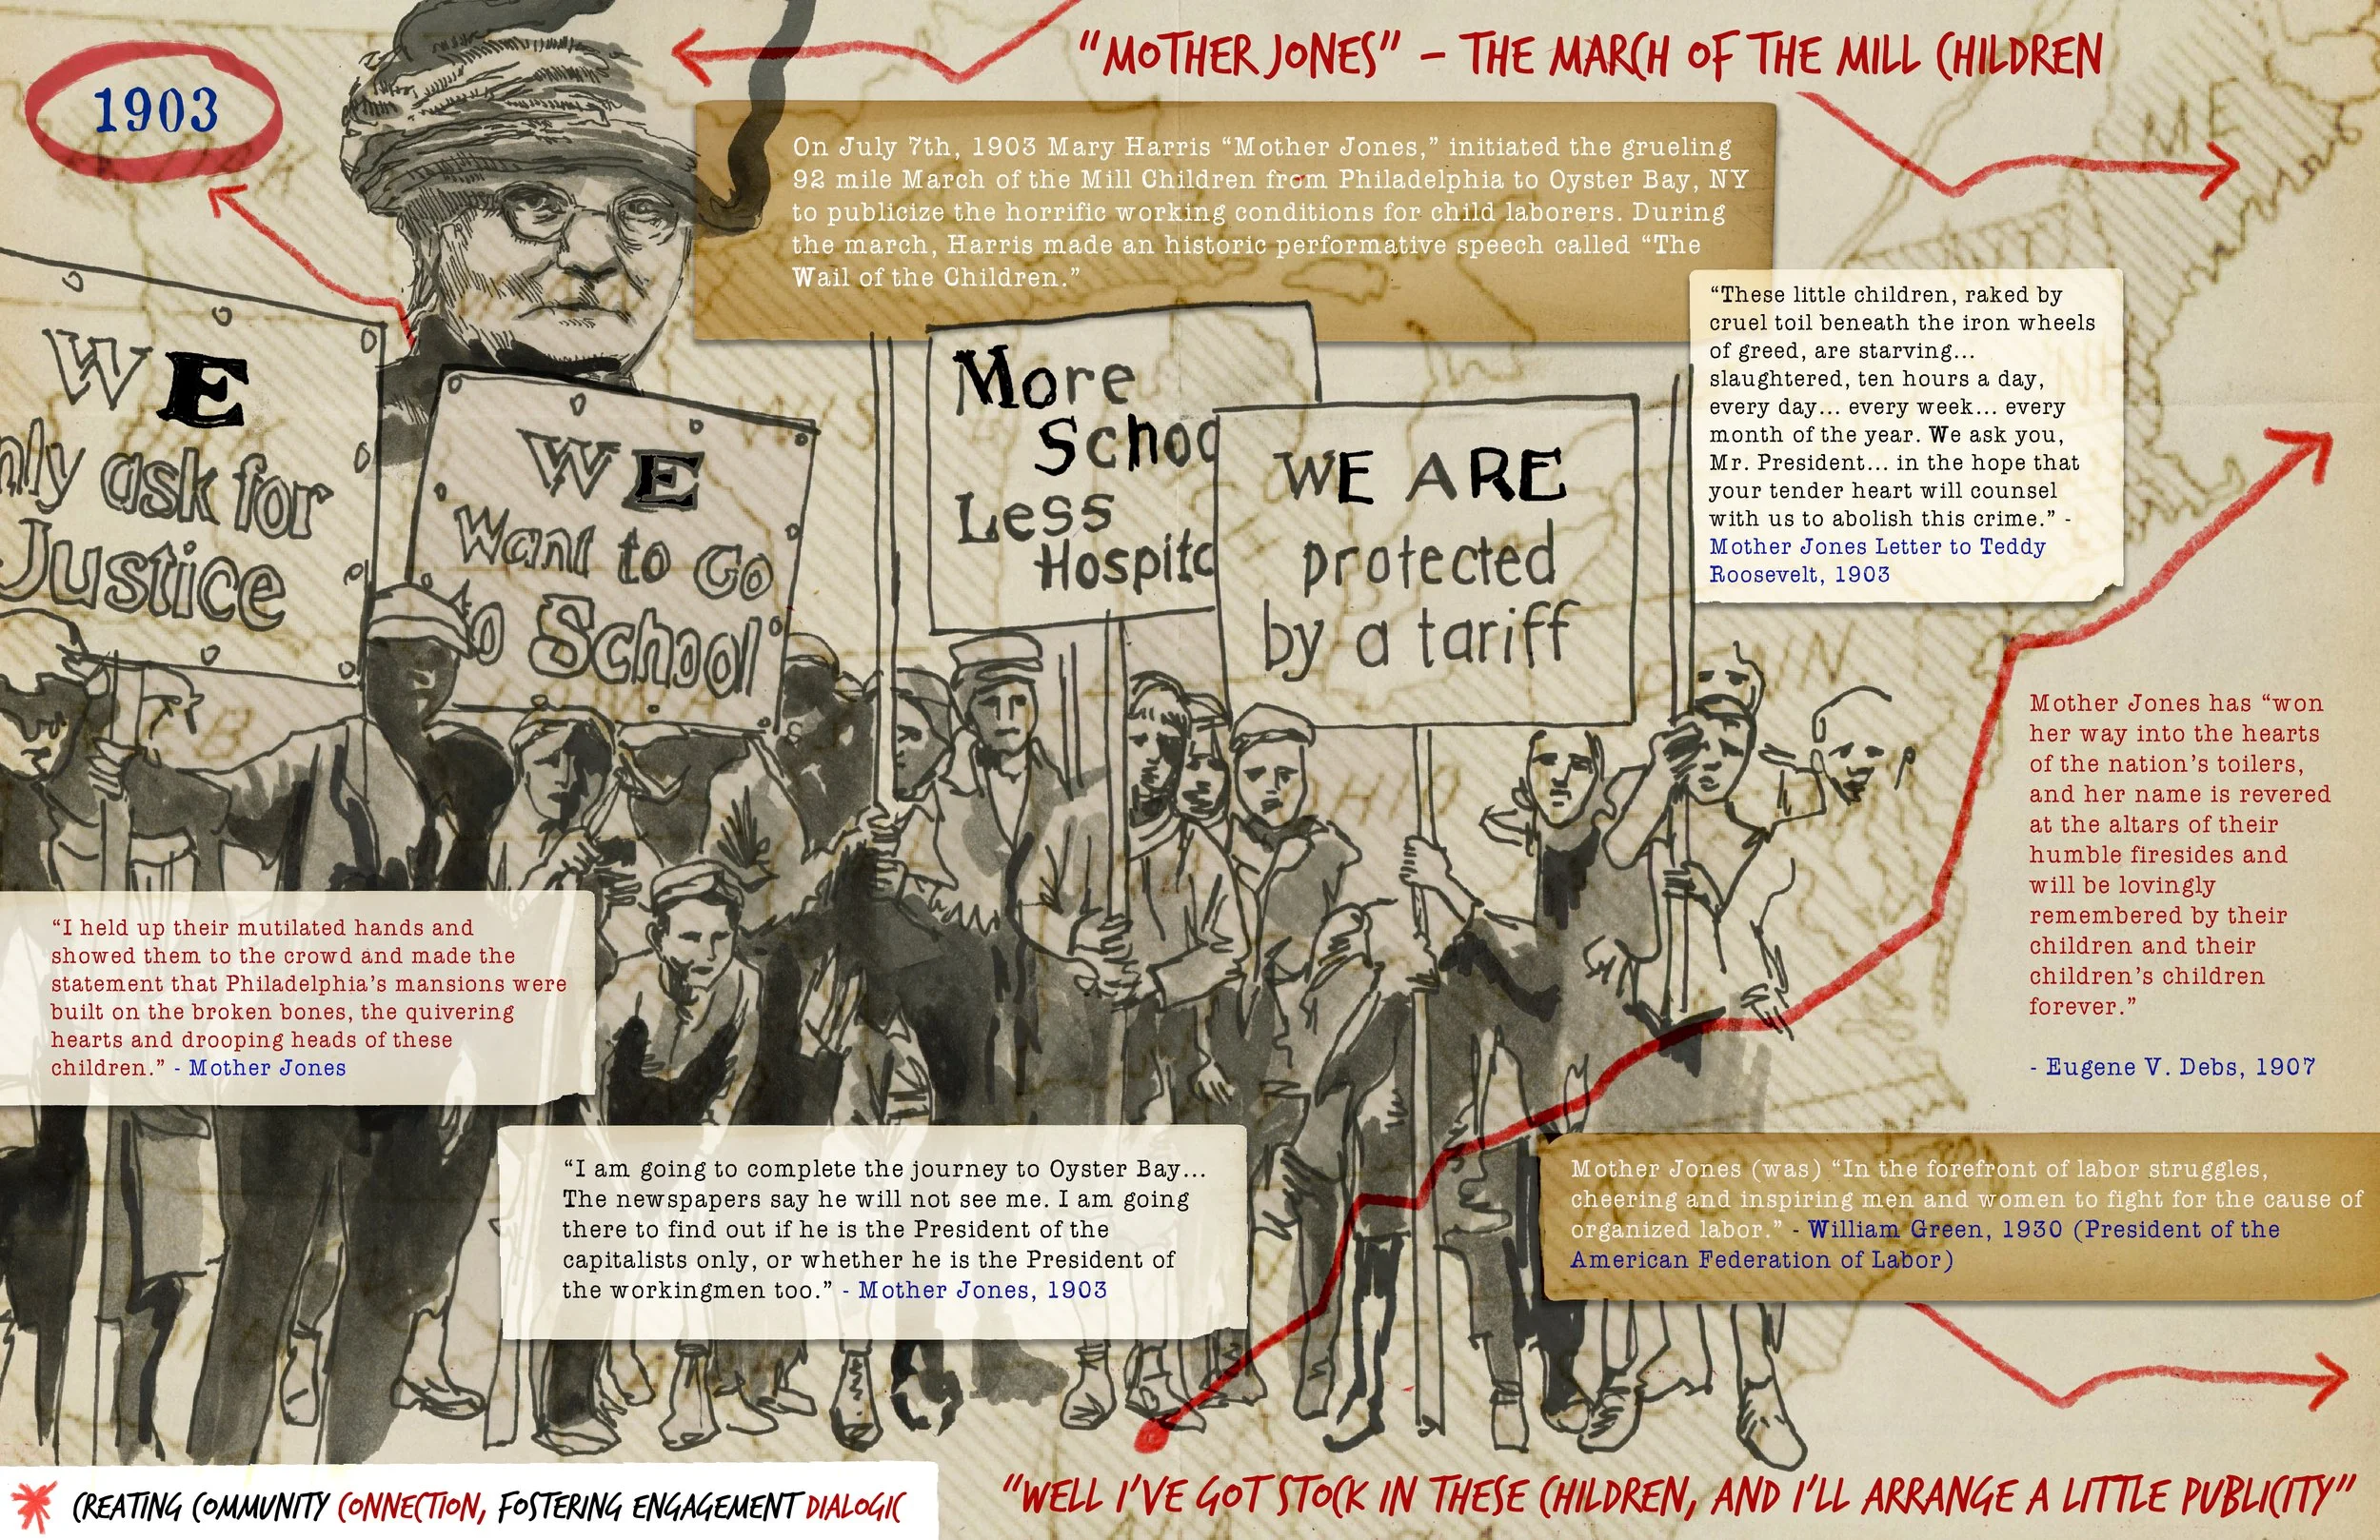 1903
"MOTHER JONES" – THE MARCH OF THE MILL CHILDREN
On July 7th, 1903 Mary Harris "Mother Jones," initiated the grueling
92 mile March of the Mill Children from Philadelphia to Oyster Bay, NY
to publicize the horrific working conditions for child laborers. During
the march, Harris made an historic performative speech called "The
Wail of the Children."
"These little children, raked by
cruel toil beneath the iron wheels
of greed, are starving...
slaughtered, ten hours a day,
every day... every week... every
month of the year. We ask you,
Mr. President... in the hope that
your tender heart will counsel
with us to abolish this crime." -
Mother Jones Letter to Teddy
Roosevelt, 1903
WE
nly ask for
Justice
WE
Want to Go
to School
More
Schoo
Less
Hospita
WE ARE
protected
by a tariff
Mother Jones has "won
her way into the hearts
of the nation's toilers,
and her name is revered
at the altars of their
humble firesides and
will be lovingly
remembered by their
children and their
children's children
forever."
- Eugene V. Debs, 1907
"I held up their mutilated hands and
showed them to the crowd and made the
statement that Philadelphia's mansions were
built on the broken bones, the quivering
hearts and drooping heads of these
children." - Mother Jones
"I am going to complete the journey to Oyster Bay...
The newspapers say he will not see me. I am going
there to find out if he is the President of the
capitalists only, or whether he is the President of
the workingmen too." - Mother Jones, 1903
Mother Jones (was) "In the forefront of labor struggles,
cheering and inspiring men and women to fight for the cause of
organized labor." - William Green, 1930 (President of the
American Federation of Labor)
CREATING COMMUNITY CONNECTION, FOSTERING ENGAGEMENT DIALOGIC
"WELL I'VE GOT STOCK IN THESE CHILDREN, AND I'LL ARRANGE A LITTLE PUBLICITY"